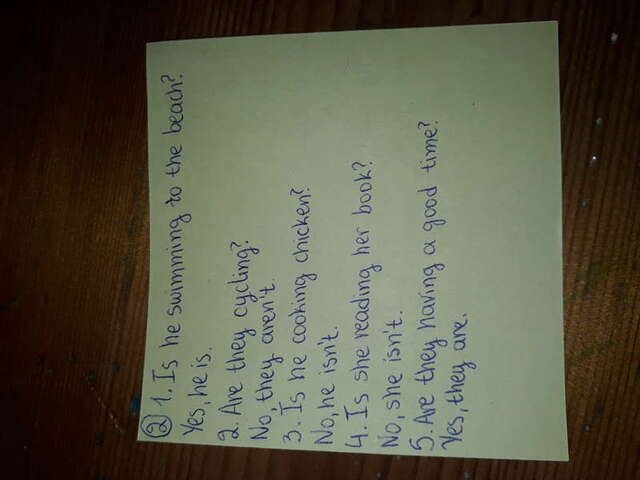 ② 1. Is he swimming to the beach?
Yes, he is.
2. Are they cycling?
No, they aren't.
3. Is he cooking chicken?
No, he isn't.
4. Is she reading her book?
No, she isn't.
5. Are they having a good time?
Yes, they are.